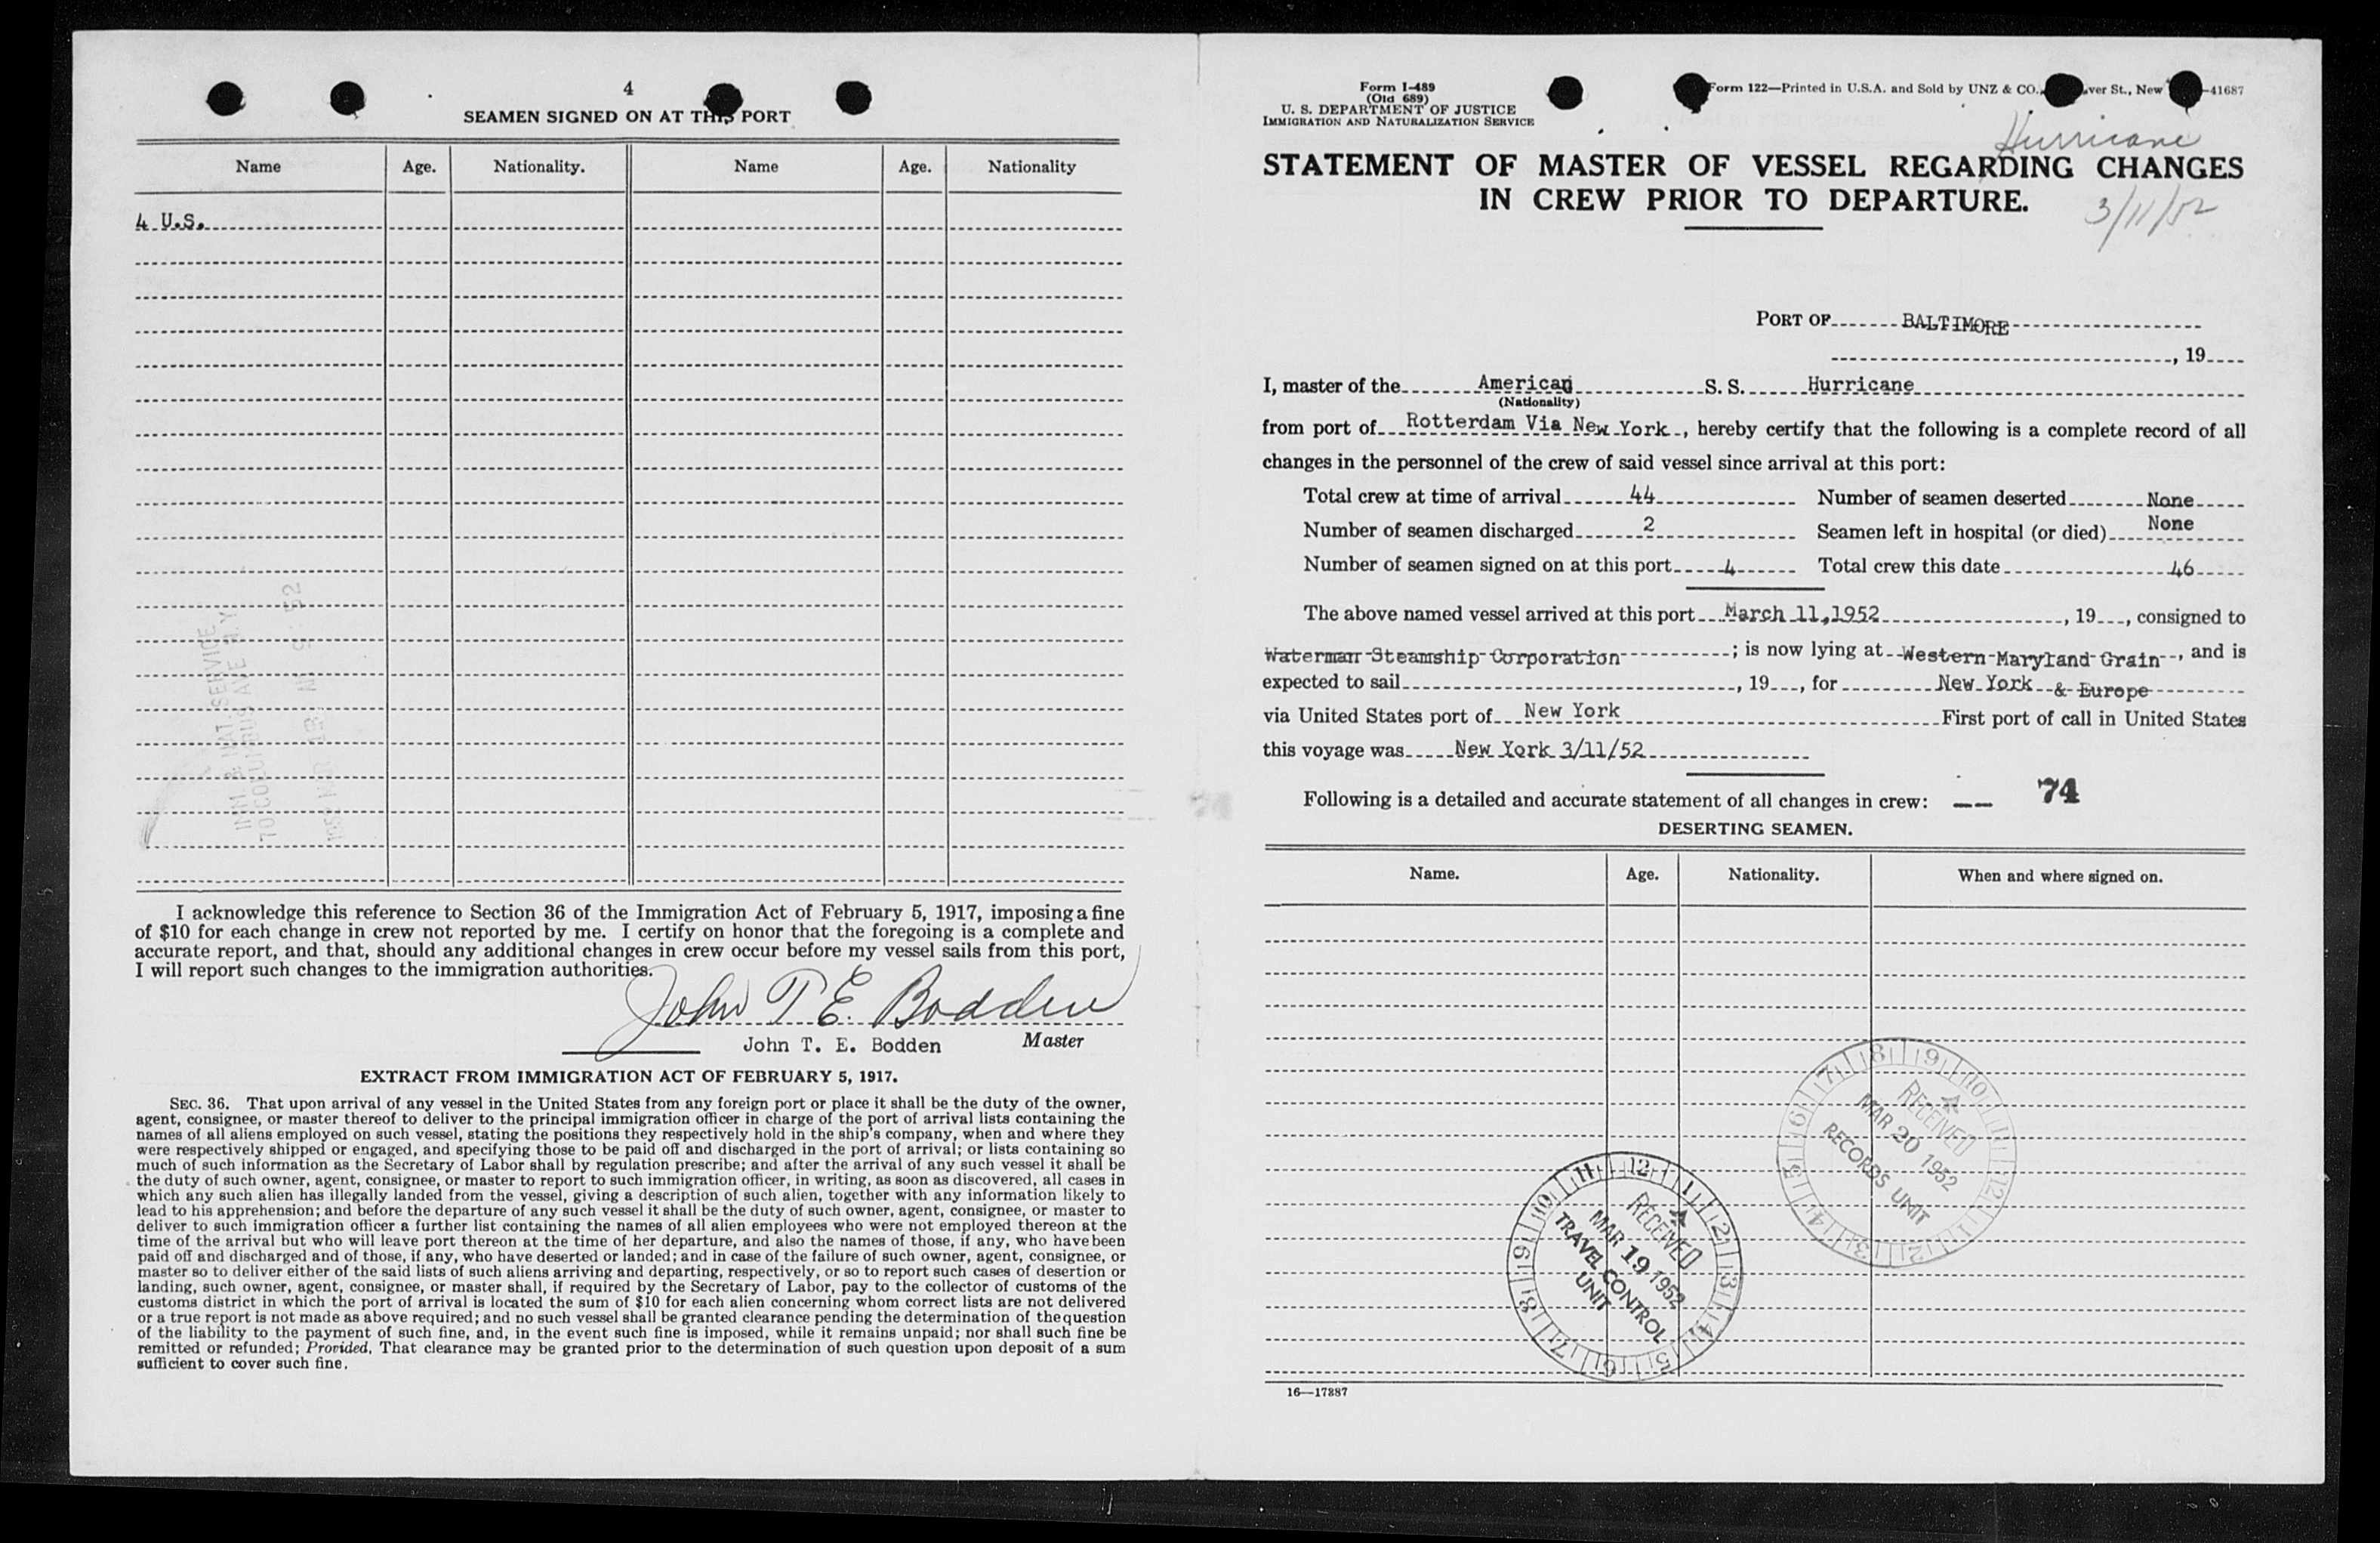 4
SEAMEN SIGNED ON AT THIS PORT
Name Age. Nationality. Name Age. Nationality
4 U.S.
IMM & NAT SERVICE
70 COLUMBUS AVE N.Y.
I acknowledge this reference to Section 36 of the Immigration Act of February 5, 1917, imposing a fine
of $10 for each change in crew not reported by me. I certify on honor that the foregoing is a complete and
accurate report, and that, should any additional changes in crew occur before my vessel sails from this port,
I will report such changes to the immigration authorities.
John T E. Bodden
John T. E. Bodden Master
EXTRACT FROM IMMIGRATION ACT OF FEBRUARY 5, 1917.
SEC. 36. That upon arrival of any vessel in the United States from any foreign port or place it shall be the duty of the owner,
agent, consignee, or master thereof to deliver to the principal immigration officer in charge of the port of arrival lists containing the
names of all aliens employed on such vessel, stating the positions they respectively hold in the ship's company, when and where they
were respectively shipped or engaged, and specifying those to be paid off and discharged in the port of arrival; or lists containing so
much of such information as the Secretary of Labor shall by regulation prescribe; and after the arrival of any such vessel it shall be
the duty of such owner, agent, consignee, or master to report to such immigration officer, in writing, as soon as discovered, all cases in
which any such alien has illegally landed from the vessel, giving a description of such alien, together with any information likely to
lead to his apprehension; and before the departure of any such vessel it shall be the duty of such owner, agent, consignee, or master to
deliver to such immigration officer a further list containing the names of all alien employees who were not employed thereon at the
time of the arrival but who will leave port thereon at the time of her departure, and also the names of those, if any, who have been
paid off and discharged and of those, if any, who have deserted or landed; and in case of the failure of such owner, agent, consignee, or
master so to deliver either of the said lists of such aliens arriving and departing, respectively, or so to report such cases of desertion or
landing, such owner, agent, consignee, or master shall, if required by the Secretary of Labor, pay to the collector of customs of the
customs district in which the port of arrival is located the sum of $10 for each alien concerning whom correct lists are not delivered
or a true report is not made as above required; and no such vessel shall be granted clearance pending the determination of the question
of the liability to the payment of such fine, and, in the event such fine is imposed, while it remains unpaid; nor shall such fine be
remitted or refunded; Provided, That clearance may be granted prior to the determination of such question upon deposit of a sum
sufficient to cover such fine.
Form I-489
(Old 689)
U. S. DEPARTMENT OF JUSTICE
IMMIGRATION AND NATURALIZATION SERVICE
Form 122—Printed in U.S.A. and Sold by UNZ & CO., ver St., New -41687
Hurricane
STATEMENT OF MASTER OF VESSEL REGARDING CHANGES
IN CREW PRIOR TO DEPARTURE.
3/11/52
PORT OF BALTIMORE
, 19
I, master of the American S. S. Hurricane
(Nationality)
from port of Rotterdam Via New York, hereby certify that the following is a complete record of all
changes in the personnel of the crew of said vessel since arrival at this port:
Total crew at time of arrival 44 Number of seamen deserted None
Number of seamen discharged 2 Seamen left in hospital (or died) None
Number of seamen signed on at this port 4 Total crew this date 46
The above named vessel arrived at this port March 11,1952, 19, consigned to
Waterman Steamship Corporation; is now lying at Western Maryland Grain, and is
expected to sail, 19, for New York & Europe
via United States port of New York First port of call in United States
this voyage was New York 3/11/52
Following is a detailed and accurate statement of all changes in crew: -- 74
DESERTING SEAMEN.
Name. Age. Nationality. When and where signed on.
8 9 10 11 12 1 2 3 4 5 6 7
RECEIVED
MAR 20 1952
RECORDS UNIT
11 12 1 2 3 4 5 6 7 8 9 10
RECEIVED
MAR 19 1952
TRAVEL CONTROL
UNIT
16—17387